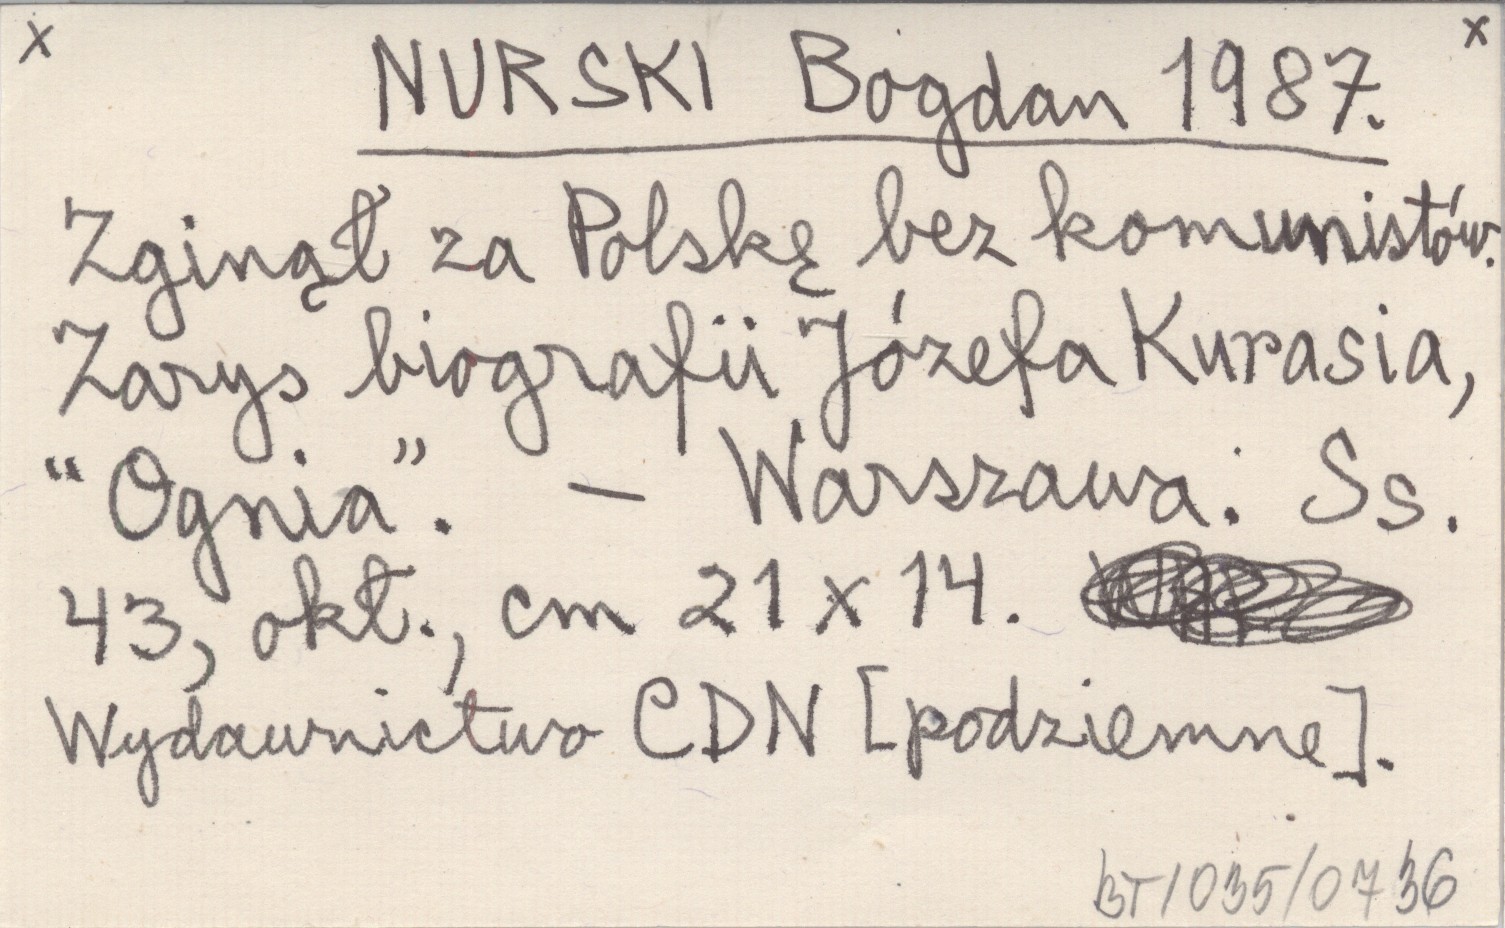 x x
NURSKI Bogdan 1987.
Zginął za Polskę bez komunistów.
Zarys biografii Józefa Kurasia,
"Ognia". — Warszawa. Ss.
43, okł., cm 21 x 14.
Wydawnictwo CDN [podziemne].
BT/035/0736